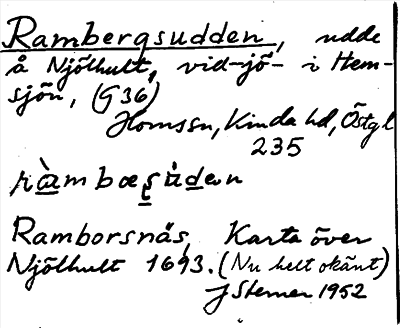 Rambergsudden, udde
å Njölhult, vid-jö- i Hem-
sjön, (G36)
Hornssn, Kinda hd, Östgl
235
Ramborsnäs, Karta över
Njölhult 1693. (Nu helt okänt)
J Sterner 1952